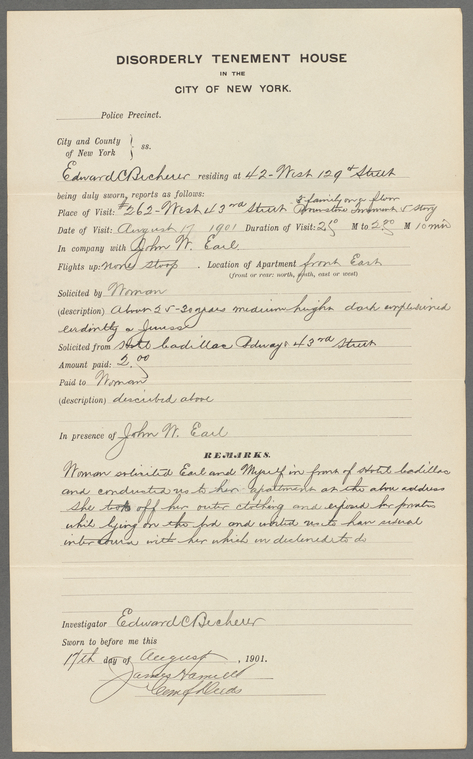 DISORDERLY TENEMENT HOUSE
IN THE
CITY OF NEW YORK.
Police Precinct.
City and County
of New York } ss.
Edward C Becherer residing at 42-West 129th Street
being duly sworn, reports as follows:
2 family on a floor
Place of Visit: #262-West 43rd Street Brownstone Tenement 5 story
Date of Visit: August 17 1901 Duration of Visit: M to M 10 min
In company with John W. Earl
Flights up: none stoop. Location of Apartment front East
(front or rear; north, south, east or west)
Solicited by Woman
(description) About 25-30 years medium height dark complexioned
evidently a Jewess
Solicited from Hotel Cadillac Bdway & 43rd Street
Amount paid: 2.00
Paid to Woman
(description) described above
In presence of John W. Earl
REMARKS.
Woman solicited Earl and Myself in front of Hotel Cadillac
and conducted us to her apartment at the above address
She took off her outer clothing and exposed her privates
while lying on the bed and wanted us to have sexual
intercourse with her which we declined to do
Investigator Edward C Becherer
Sworn to before me this
17th day of August, 1901.
James Hamill
Com of Deeds